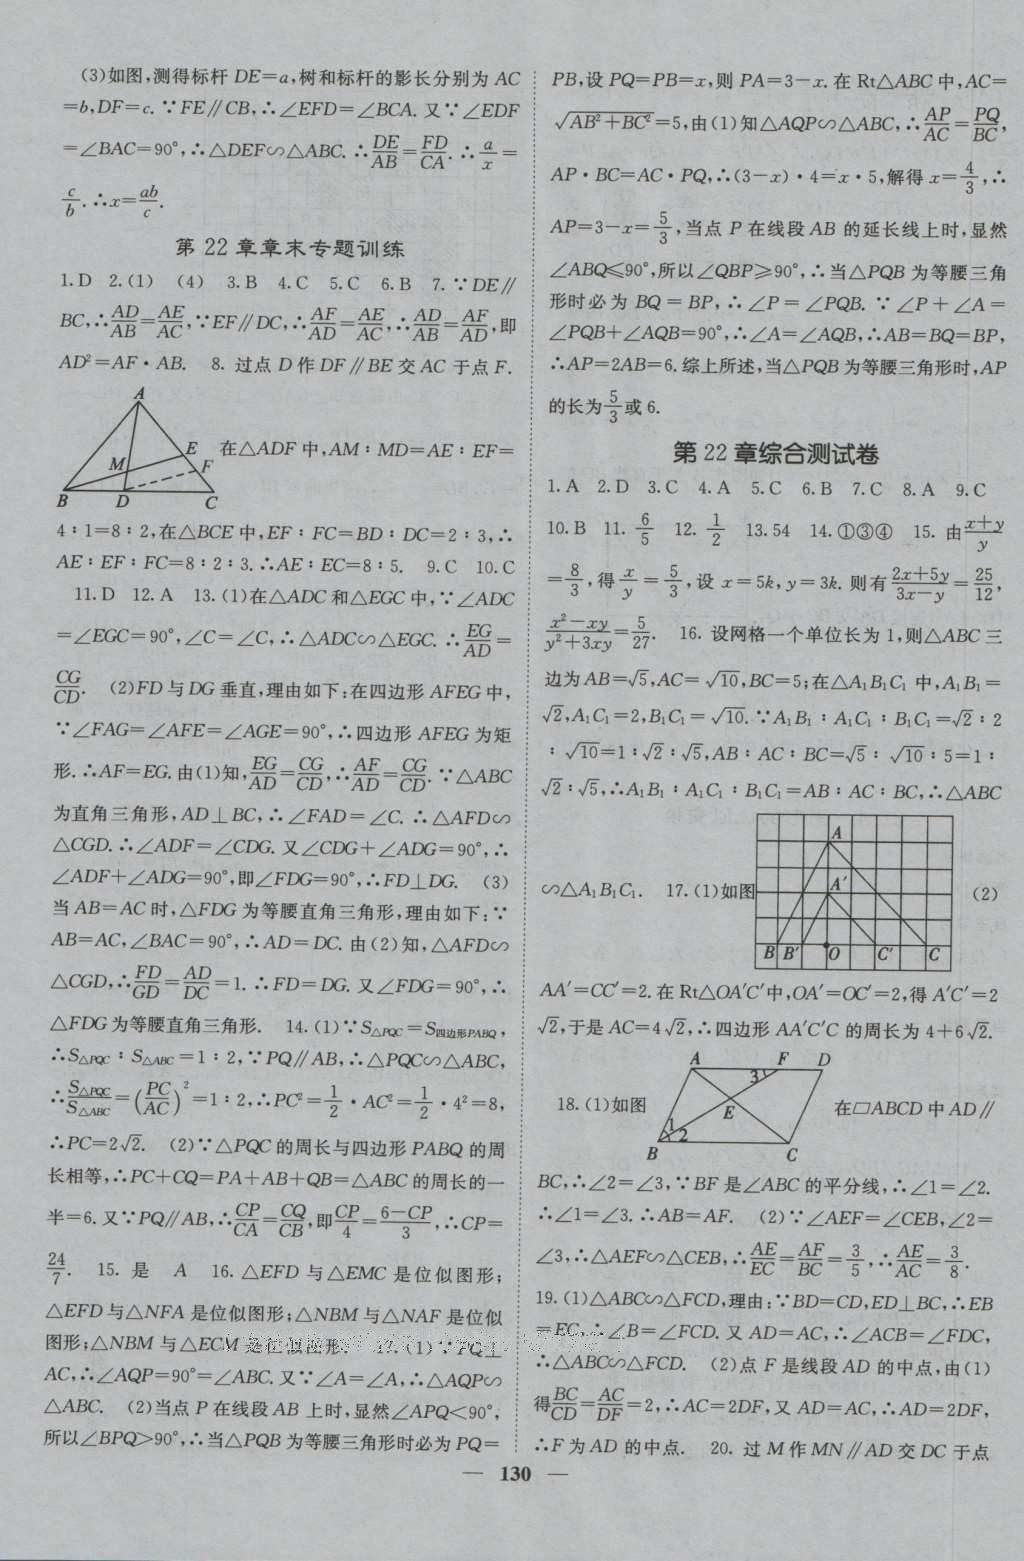 (3)如图,测得标杆 DE=a,树和标杆的影长分别为 AC
=b,DF=c. ∵FE∥CB,∴∠EFD=∠BCA. 又∵∠EDF
=∠BAC=90°,∴△DEF∽△ABC. ∴DE/AB=FD/CA. ∴a/x=
c/b. ∴x=ab/c.
第 22 章章末专题训练
1. D 2. (1) (4) 3. B 4. C 5. C 6. B 7. ∵DE∥
BC,∴AD/AB=AE/AC,∵EF∥DC,∴AF/AD=AE/AC,∴AD/AB=AF/AD,即
AD²=AF·AB. 8. 过点 D 作 DF∥BE 交 AC 于点 F.
A
M
E
F
B
D
C
在△ADF 中,AM∶MD=AE∶EF=
4∶1=8∶2,在△BCE 中,EF∶FC=BD∶DC=2∶3,∴
AE∶EF∶FC=8∶2∶3. ∴AE∶EC=8∶5. 9. C 10. C
11. D 12. A 13. (1)在△ADC 和△EGC 中,∵∠ADC
=∠EGC=90°,∠C=∠C,∴△ADC∽△EGC. ∴EG/AD=
CG/CD. (2)FD 与 DG 垂直,理由如下:在四边形 AFEG 中,
∵∠FAG=∠AFE=∠AGE=90°,∴四边形 AFEG 为矩
形. ∴AF=EG. 由(1)知,EG/AD=CG/CD,∴AF/AD=CG/CD. ∵△ABC
为直角三角形,AD⊥BC,∴∠FAD=∠C. ∴△AFD∽
△CGD. ∴∠ADF=∠CDG. 又∠CDG+∠ADG=90°,∴
∠ADF+∠ADG=90°,即∠FDG=90°,∴FD⊥DG. (3)
当 AB=AC 时,△FDG 为等腰直角三角形,理由如下:∵
AB=AC,∠BAC=90°,∴AD=DC. 由(2)知,△AFD∽
△CGD,∴FD/GD=AD/DC=1. ∴FD=DG. 又∠FDG=90°,∴
△FDG 为等腰直角三角形. 14. (1)∵S△PQC=S四边形PABQ,
∴S△PQC∶S△ABC=1∶2,∵PQ∥AB,∴△PQC∽△ABC,
∴S△PQC/S△ABC=(PC/AC)²=1∶2,∴PC²=1/2·AC²=1/2·4²=8,
∴PC=2√2. (2)∵△PQC 的周长与四边形 PABQ 的周
长相等,∴PC+CQ=PA+AB+QB=△ABC 的周长的一
半=6. 又∵PQ∥AB,∴CP/CA=CQ/CB,即CP/4=6−CP/3,∴CP=
24/7. 15. 是 A 16. △EFD 与△EMC 是位似图形;
△EFD 与△NFA 是位似图形;△NBM 与△NAF 是位似
图形;△NBM 与△ECM 是位似图形. 17. (1)∵PQ⊥
AC,∴∠AQP=90°=∠ABC. 又∵∠A=∠A,∴△AQP∽
△ABC. (2)当点 P 在线段 AB 上时,显然∠APQ<90°,
所以∠BPQ>90°,∴当△PQB 为等腰三角形时必为 PQ=
PB,设 PQ=PB=x,则 PA=3−x. 在 Rt△ABC 中,AC=
√(AB²+BC²)=5,由(1)知△AQP∽△ABC,∴AP/AC=PQ/BC,
AP·BC=AC·PQ,∴(3−x)·4=x·5,解得 x=4/3,∴
AP=3−x=5/3,当点 P 在线段 AB 的延长线上时,显然
∠ABQ≤90°,所以∠QBP≥90°,∴当△PQB 为等腰三角
形时必为 BQ=BP,∴∠P=∠PQB. ∵∠P+∠A=
∠PQB+∠AQB=90°,∴∠A=∠AQB,∴AB=BQ=BP,
∴AP=2AB=6. 综上所述,当△PQB 为等腰三角形时,AP
的长为5/3或 6.
第 22 章综合测试卷
1. A 2. D 3. C 4. A 5. C 6. B 7. C 8. A 9. C
10. B 11. 6/5 12. 1/2 13. 54 14. ①③④ 15. 由x+y/y
=8/3,得x/y=5/3,设 x=5k,y=3k. 则有2x+5y/3x−y=25/12,
x²−xy/y²+3xy=5/27. 16. 设网格一个单位长为 1,则△ABC 三
边为 AB=√5,AC=√10,BC=5;在△A₁B₁C₁ 中,A₁B₁=
√2,A₁C₁=2,B₁C₁=√10. ∵A₁B₁∶A₁C₁∶B₁C₁=√2∶2
∶√10=1∶√2∶√5,AB∶AC∶BC=√5∶√10∶5=1∶
√2∶√5,∴A₁B₁∶A₁C₁∶B₁C₁=AB∶AC∶BC,∴△ABC
∽△A₁B₁C₁. 17. (1)如图
A
A′
B B′ O C′ C
(2)
AA′=CC′=2. 在 Rt△OA′C′中,OA′=OC′=2,得 A′C′=2
√2,于是 AC=4√2,∴四边形 AA′C′C 的周长为 4+6√2.
18. (1)如图
A F D
3
E
1
2
B C
在▱ABCD 中 AD∥
BC,∴∠2=∠3,∵BF 是∠ABC 的平分线,∴∠1=∠2.
∴∠1=∠3. ∴AB=AF. (2)∵∠AEF=∠CEB,∠2=
∠3,∴△AEF∽△CEB,∴AE/EC=AF/BC=3/5,∴AE/AC=3/8.
19. (1)△ABC∽△FCD,理由:∵BD=CD,ED⊥BC,∴EB
=EC,∴∠B=∠FCD. 又 AD=AC,∴∠ACB=∠FDC,
∴△ABC∽△FCD. (2)点 F 是线段 AD 的中点,由(1)
得BC/CD=AC/DF=2,∴AC=2DF,又 AD=AC,∴AD=2DF,
∴F 为 AD 的中点. 20. 过 M 作 MN∥AD 交 DC 于点
— 130 —